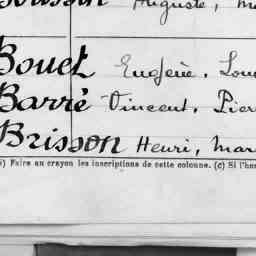 Auguste, M
Bouet Eugène, Lou
Barré Vincent, Pier
Brisson Henri, Mar
) Faire au crayon les inscriptions de cette colonne. (c) Si l'hom